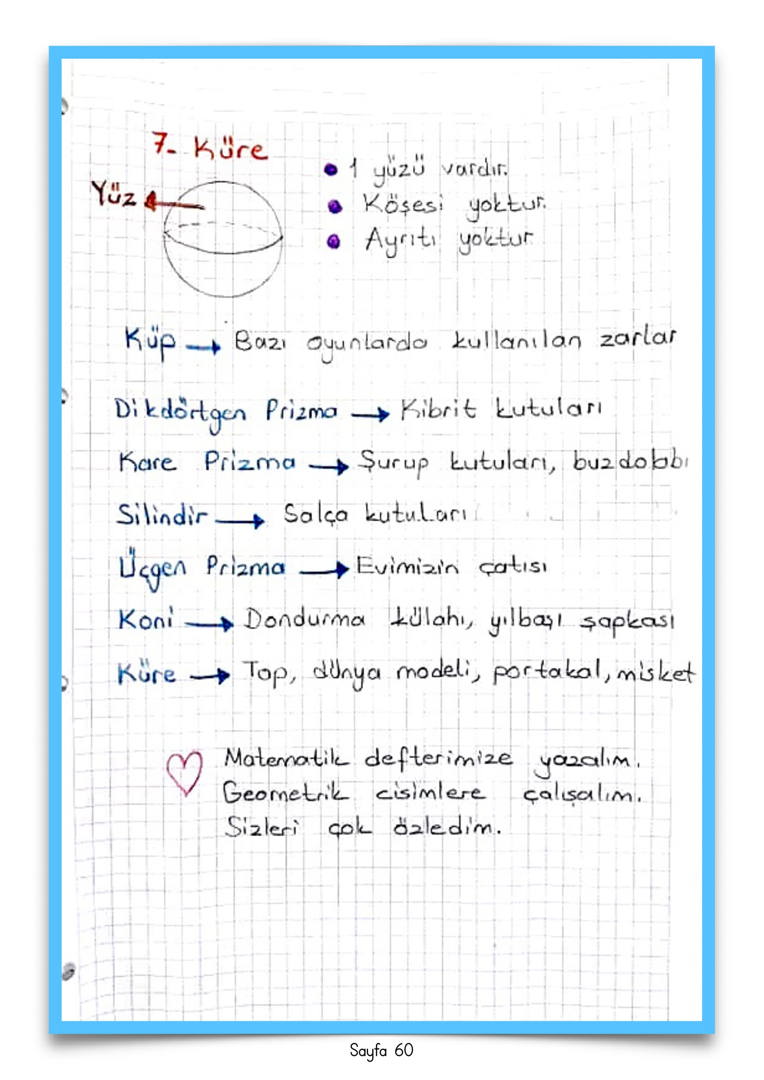 7- Küre
Yüz
1 yüzü vardır.
Köşesi yoktur.
Ayrıtı yoktur
Küp → Bazı oyunlarda kullanılan zarlar
Dikdörtgen Prizma → Kibrit kutuları
Kare Prizma → Şurup kutuları, buzdolabı
Silindir → Salça kutuları
Üçgen Prizma → Evimizin çatısı
Koni → Dondurma külahı, yılbaşı şapkası
Küre → Top, dünya modeli, portakal, misket
Matematik defterimize yazalım.
Geometrik cisimlere çalışalım.
Sizleri çok özledim.
Sayfa 60